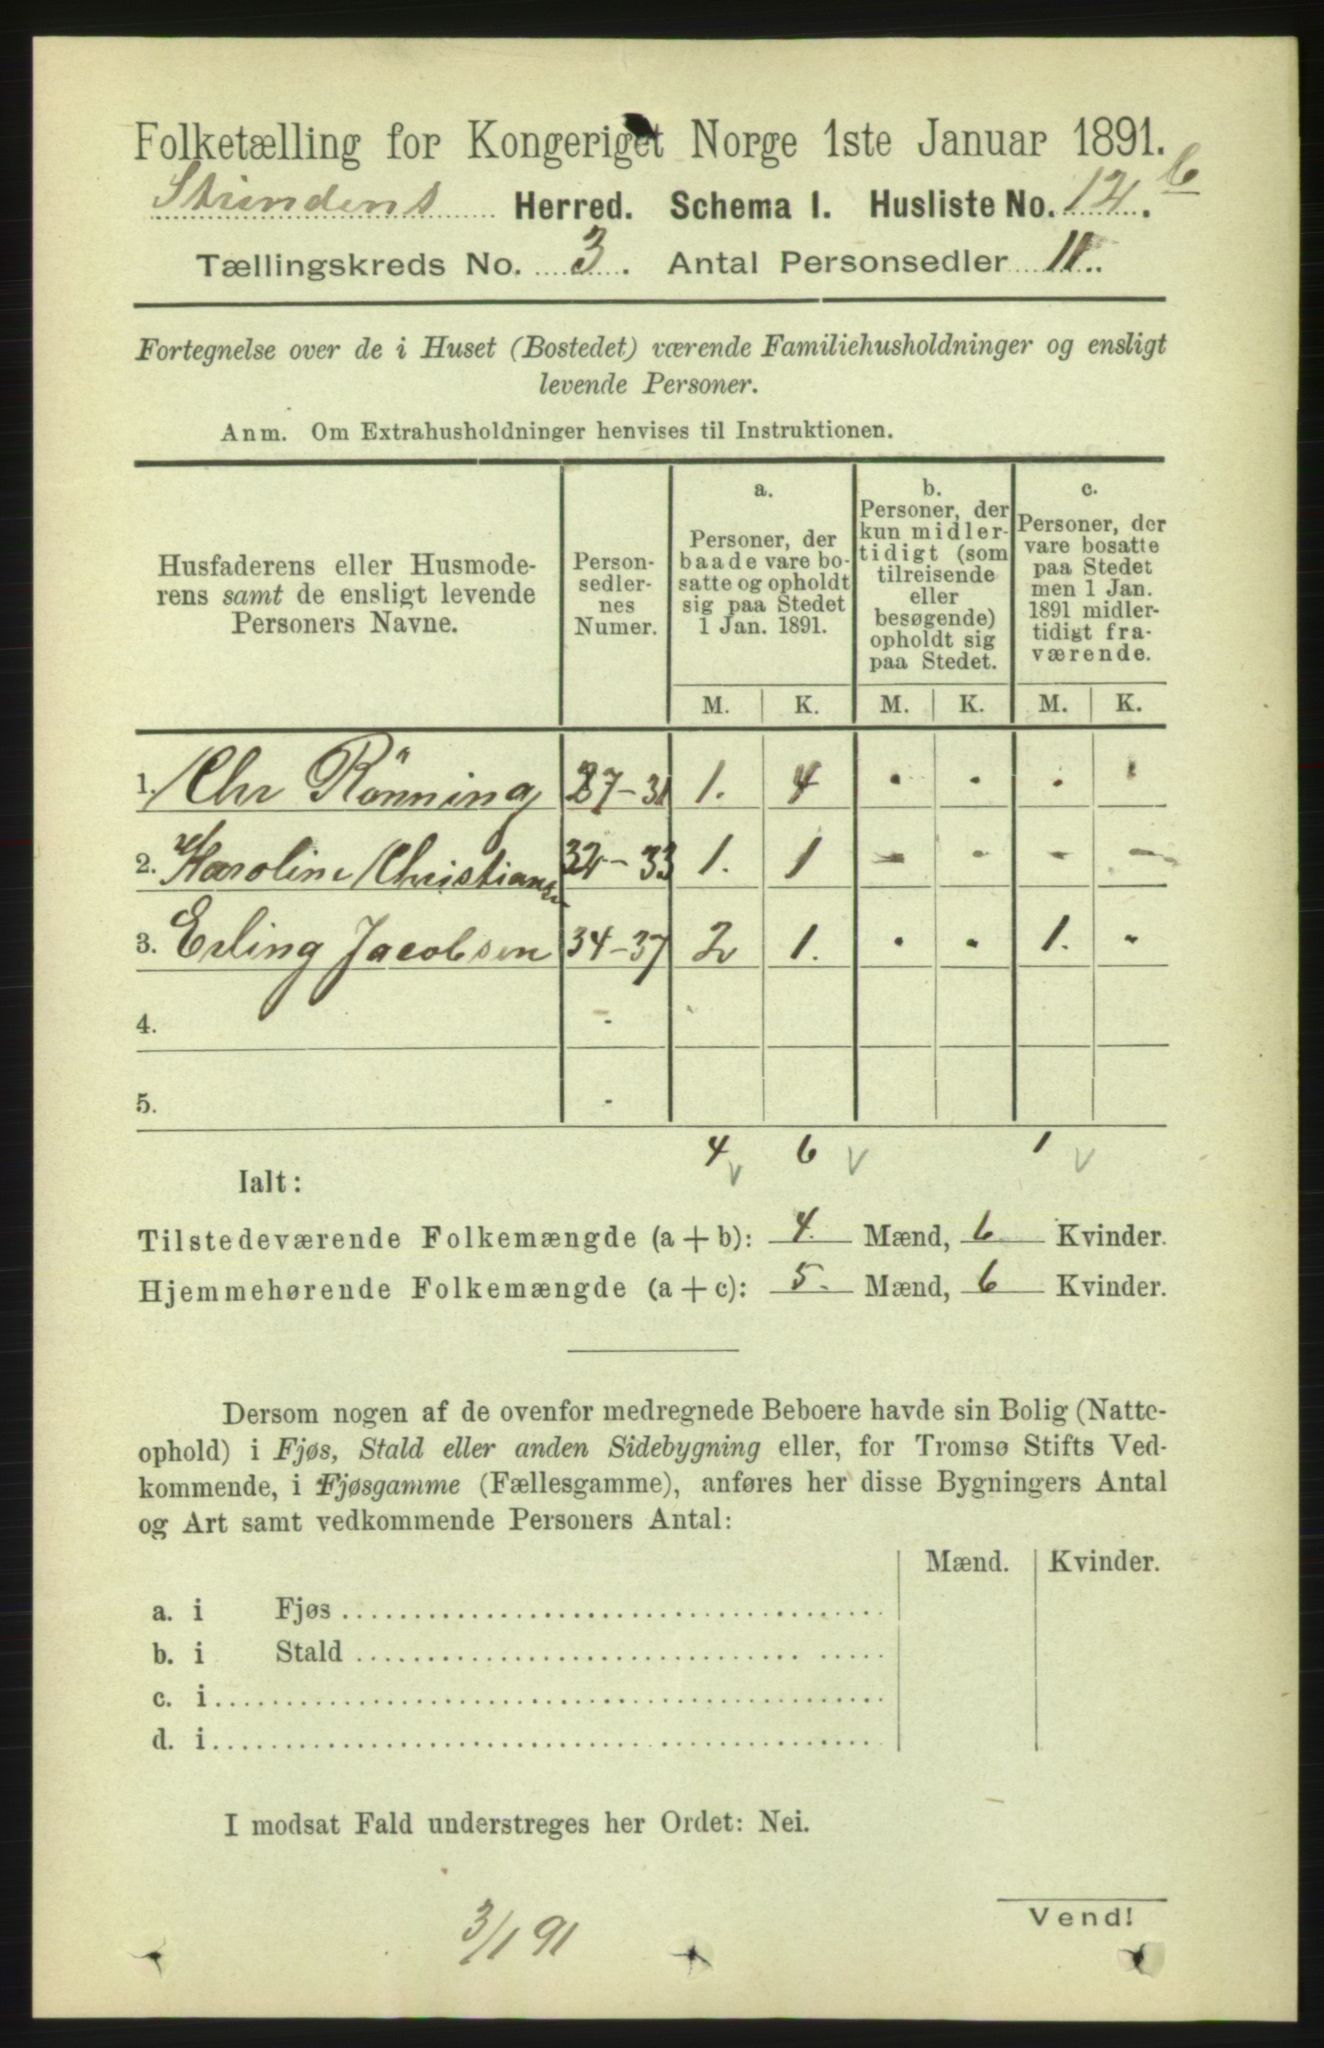 Folketælling for Kongeriget Norge 1ste Januar 1891.
Strindens Herred. Schema 1. Husliste No. 12 b.
Tællingskreds No. 3. Antal Personsedler 11.
Fortegnelse over de i Huset (Bostedet) værende Familiehusholdninger og ensligt
levende Personer.
Anm. Om Extrahusholdninger henvises til Instruktionen.
Husfaderens eller Husmode-
rens samt de ensligt levende
Personers Navne.
Person-
sedler-
nes
Numer.
a.
Personer, der
baade vare bo-
satte og opholdt
sig paa Stedet
1 Jan. 1891.
b.
Personer, der
kun midler-
tidigt (som
tilreisende
eller
besøgende)
opholdt sig
paa Stedet.
c.
Personer, der
vare bosatte
paa Stedet
men 1 Jan.
1891 midler-
tidigt fra-
værende.
M. K. M. K. M. K.
1. Chr Rönning 27-31 1. 4 . . . .
2. Karoline Christiansen 32-33 1. 1 - - - -
3. Erling Jacobsen 34-37 2 1. . . 1. -
4. -
5. -
4 6 1
Ialt:
Tilstedeværende Folkemængde (a+b): 4. Mænd, 6 Kvinder.
Hjemmehørende Folkemængde (a+c): 5. Mænd, 6 Kvinder.
Dersom nogen af de ovenfor medregnede Beboere havde sin Bolig (Natte-
ophold) i Fjøs, Stald eller anden Sidebygning eller, for Tromsø Stifts Ved-
kommende, i Fjøsgamme (Fællesgamme), anføres her disse Bygningers Antal
og Art samt vedkommende Personers Antal:
Mænd. Kvinder.
a. i Fjøs
b. i Stald
c. i
d. i
I modsat Fald understreges her Ordet: Nei.
Vend!
3/1 91